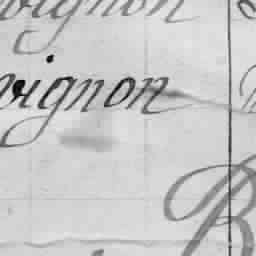 vignon
vignon
B